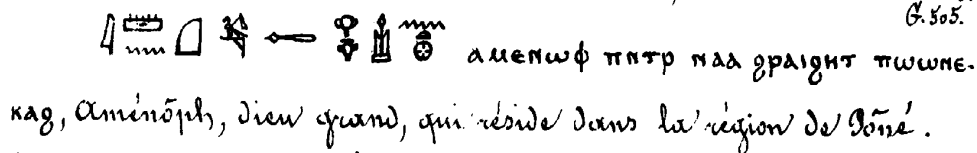 G. 505.
ⲁⲙⲉⲛⲱⲫ ⲡⲛⲧⲣ ⲛⲁⲁ ϩⲣⲁⲓϩⲏⲧ ⲡⲱⲱⲛⲉ-
ⲕⲁϩ, Aménôph, dieu grand, qui réside dans la région de Pôné.